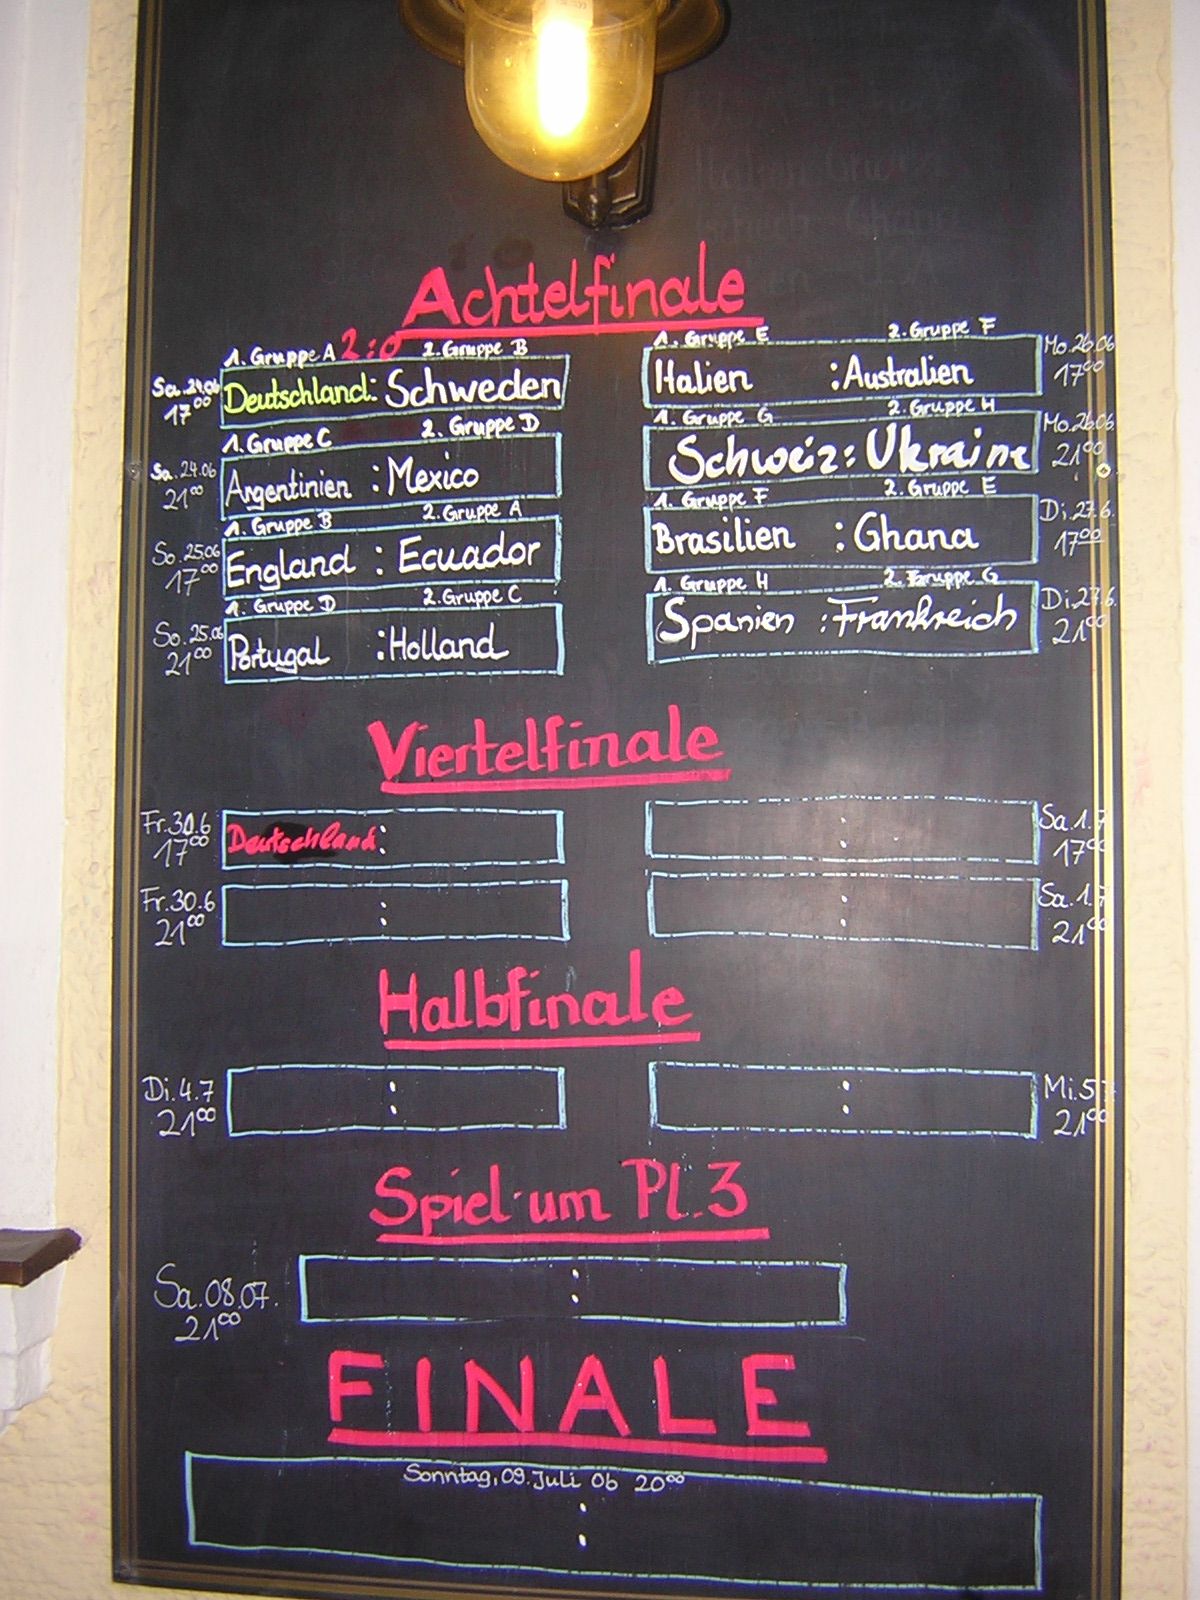 Achtelfinale
1. Gruppe A 2:0 2. Gruppe B
Sa. 24.06 17⁰⁰ Deutschland : Schweden
1. Gruppe C 2. Gruppe D
Sa. 24.06 21⁰⁰ Argentinien : Mexico
1. Gruppe B 2. Gruppe A
So. 25.06 17⁰⁰ England : Ecuador
1. Gruppe D 2. Gruppe C
So. 25.06 21⁰⁰ Portugal : Holland
1. Gruppe E 2. Gruppe F
Italien : Australien Mo. 26.06 17⁰⁰
1. Gruppe G 2. Gruppe H
Schweiz : Ukraine Mo. 26.06 21⁰⁰
1. Gruppe F 2. Gruppe E
Brasilien : Ghana Di. 27.6. 17⁰⁰
1. Gruppe H 2. Gruppe G
Spanien : Frankreich Di. 27.6. 21⁰⁰
Viertelfinale
Fr. 30.6 17⁰⁰ Deutschland :
Fr. 30.6 21⁰⁰ :
: Sa. 1.7 17⁰⁰
: Sa. 1.7 21⁰⁰
Halbfinale
Di. 4.7 21⁰⁰ :
: Mi. 5.7 21⁰⁰
Spiel um Pl. 3
Sa. 08.07. 21⁰⁰ :
FINALE
Sonntag, 09. Juli 06 20⁰⁰
: